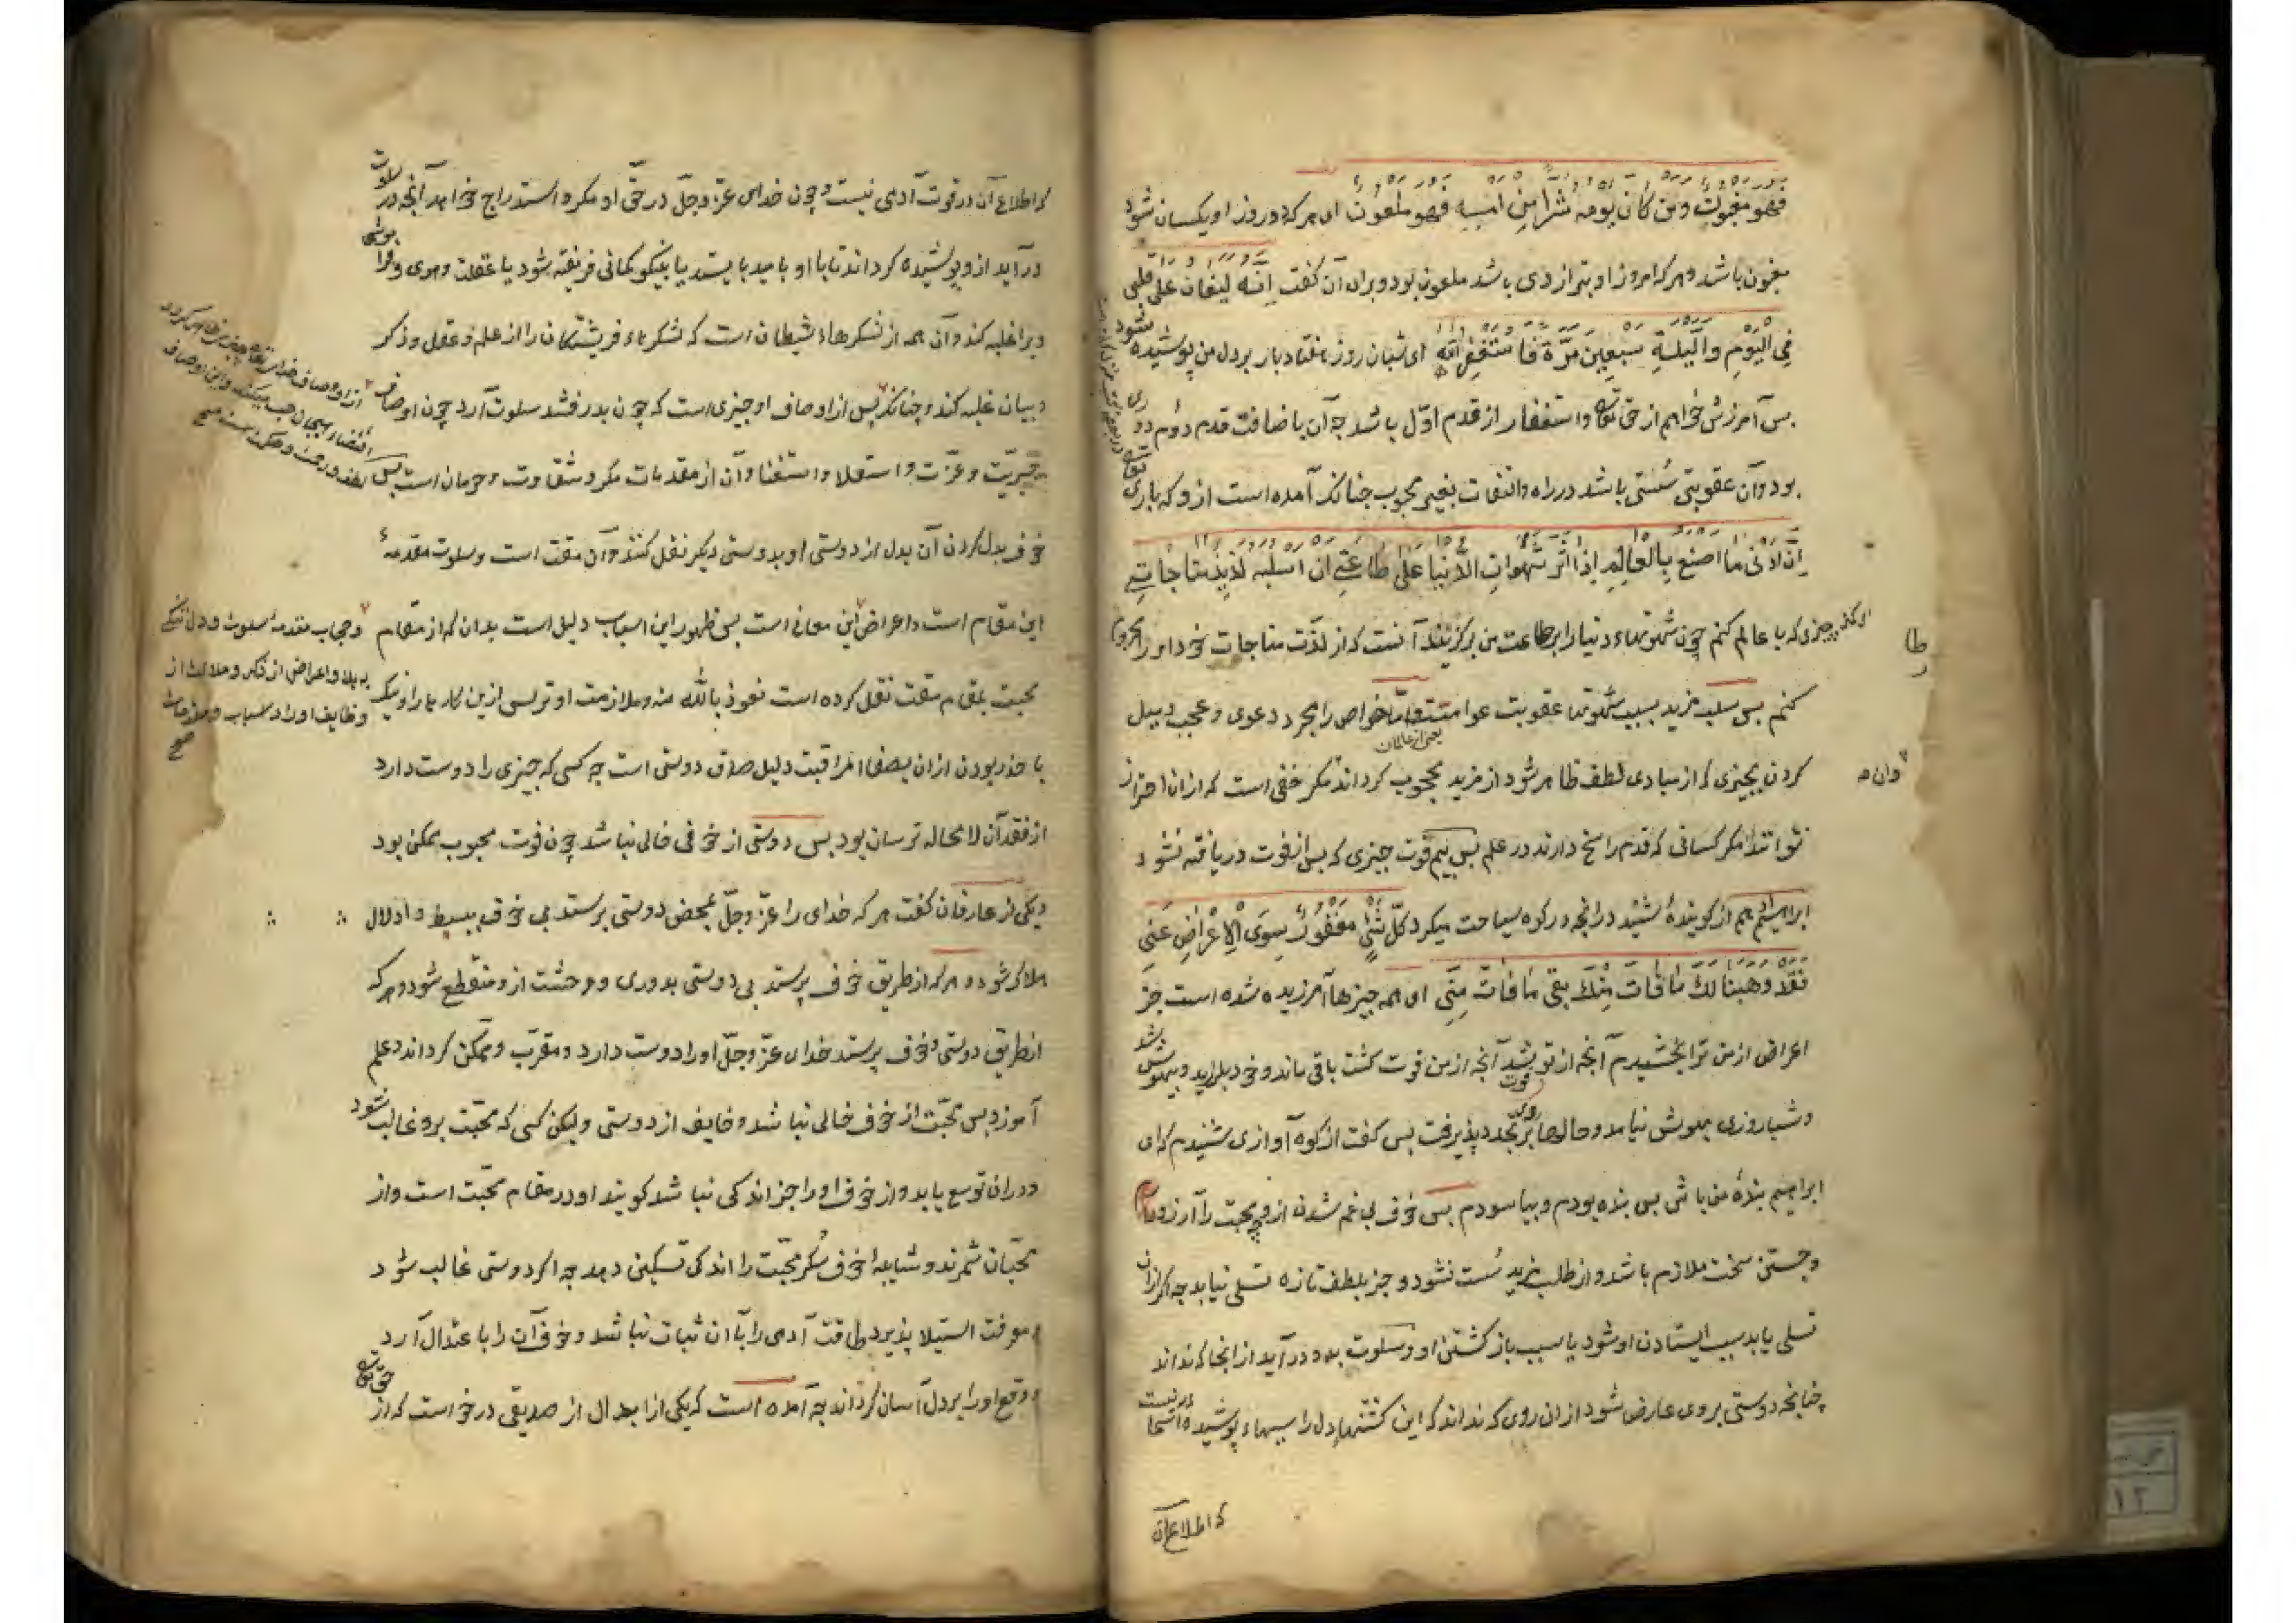 فهو مغبون ومن كان يومه شرا من امسه فهو ملعون ای هرکه دو روز او یکسان شود
مغبون باشد و هرکه امروز او بتر از دی باشد ملعون بود و برای آن گفت انه لیغان علی قلبی
فی الیوم واللیلة سبعین مرة فاستغفر الله ای شبان روز هفتاد بار بر دل من پوشیده شود
پس آمرزش خواهم از حق تعالی و استغفار از قدم اول باشد چه آن باضافت قدم دوم دوری
بود و آن عقوبتی سستی باشد در راه والتفات بغیر محبوب چنانکه آمده است ازو که باری تعالی
ان ادنی ما اصنع بالعالم اذا اثر شهوات الدنیا علی طاعتی ان اسلبه لذیذ مناجاتی
ای کمتر چیزی که با عالم کنم چون شهوتهاء دنیا را بر طاعت من برگزیند آنست که از لذت مناجات خود او را محروم
کنم پس سلب مزید بسبب شهوتها عقوبت عوامست و اما خواص را مجرد دعوی و عجب و میل
یعنی از عالمان
کردن بچیزی که از مبادی لطف ظاهر شود از مزید محجوب گرداند و آن مکر خفی است که از ان احتراز
نتوانند مگر کسانی که قدم راسخ دارند در علم پس بیم فوت چیزی که پس از فوت دریافته نشود
ابراهیم ادهم از گوینده شنید در انچه در کوه سیاحت میکرد کل شئ مغفور سوی الاعراض عنی
فقد وهبنا لك ما فات منك بقی ما فات منی ای همه چیزها آمرزیده شده است جز
اعراض از من ترا بخشیدم آنچه از تو فوت شد آنچه از من فوت گشت باقی ماند و خود بلرزید و بیهوش شد
و شبا روزی بهوش نیامد و حالها بروی تجدد پذیرفت پس گفت از کوه آوازی شنیدم که ای
ابراهیم بندهٔ من باش پس بنده بودم و بیاسودم پس خوف بی غم شدن ازو چه محبت را آرزو مدام
و جستن سخت ملازم باشد و از طلب مزید سست نشود و جز بلطف تازه تسلی نیابد چه اگر از ان
تسلی یابد سبب ایستادن او شود یا سبب باز گشتن او و سلوت بدو درآید از انجا که نداند
چنانچه دوستی بروی عارض شود از ان روی که نداند که این گشتنهاء دل را سببهاء پوشیده آسمانیست
که اطلاع آن
که اطلاع آن در قوت آدمی نیست و چون خدای عز وجل در حق او مکر و استدراج خواهد آنچه در سلوت
درآید از و پوشیده گرداند تا با او بامید بایستد یا بنیکو گمانی فریفته شود یا غفلت و هوی و فراموشی
ویرا غلبه کند و آن همه از لشکرهاء شیطان است که لشکرهاء فریشتگان را از علم و عقل و ذکر
و بیان غلبه کند و چنانکه پس از اوصاف او چیزی است که چون بدرفشد سلوت آرد چون اوصاف
جبریت و عزت و استعلا و استغنا و آن از مقدمات مکر و شقاوت و حرمان است پس
خوف بدل کردن آن بدل از دوستی او بدوستی دیگر نقل کنند و آن مقت است و سلوت مقدمهٔ
این مقام است و اعراض این معانی است پس ظهور این اسباب دلیل است بدان که از مقام
و حجاب مقدمهٔ سلوت و دل تنگی
به بلا و اعراض از ذکر و ملالت از
وظایف اوراد اسباب و مقدمات
صح
محبت بمقام مقت نقل کرده است نعوذ بالله منه و ملازمت او ترس ازین کارها را و نیک
با حذر بودن از ان بصفای مراقبت دلیل صدق دوستی است چه کسی که چیزی را دوست دارد
از فقد آن لا محاله ترسان بود پس دوستی از خوفی خالی نباشد چون فوت محبوب ممکن بود
و یکی از عارفان گفت هر که خدای را عز وجل بمحض دوستی پرستد بی خوف ببسط و ادلال
هلاک شود و هرکه از طریق خوف پرستد بی دوستی بدوری و وحشت ازو منقطع شود و هرکه
از طریق دوستی و خوف پرستد خدای عز وجل او را دوست دارد و مقرب و ممکن گرداند و علم
آموزد پس محبت از خوف خالی نباشد و خایف از دوستی ولیکن کسی که محبت برو غالب شود
و در ان توسع یابد و از خوف او را جز اندکی نباشد گویند او در مقام محبت است و از
محبان شمرند و شایبهٔ خوف سکر محبت را اندکی تسکینی دهد چه اگر دوستی غالب شود
و معرفت استیلا پذیرد طاقت آدمی را با آن ثبات نباشد و خوف آن را باعتدال آرد
و وقع او را بر دل آسان گرداند چه آمده است که یکی از ابدال از صدیقی درخواست که از حق تعالی